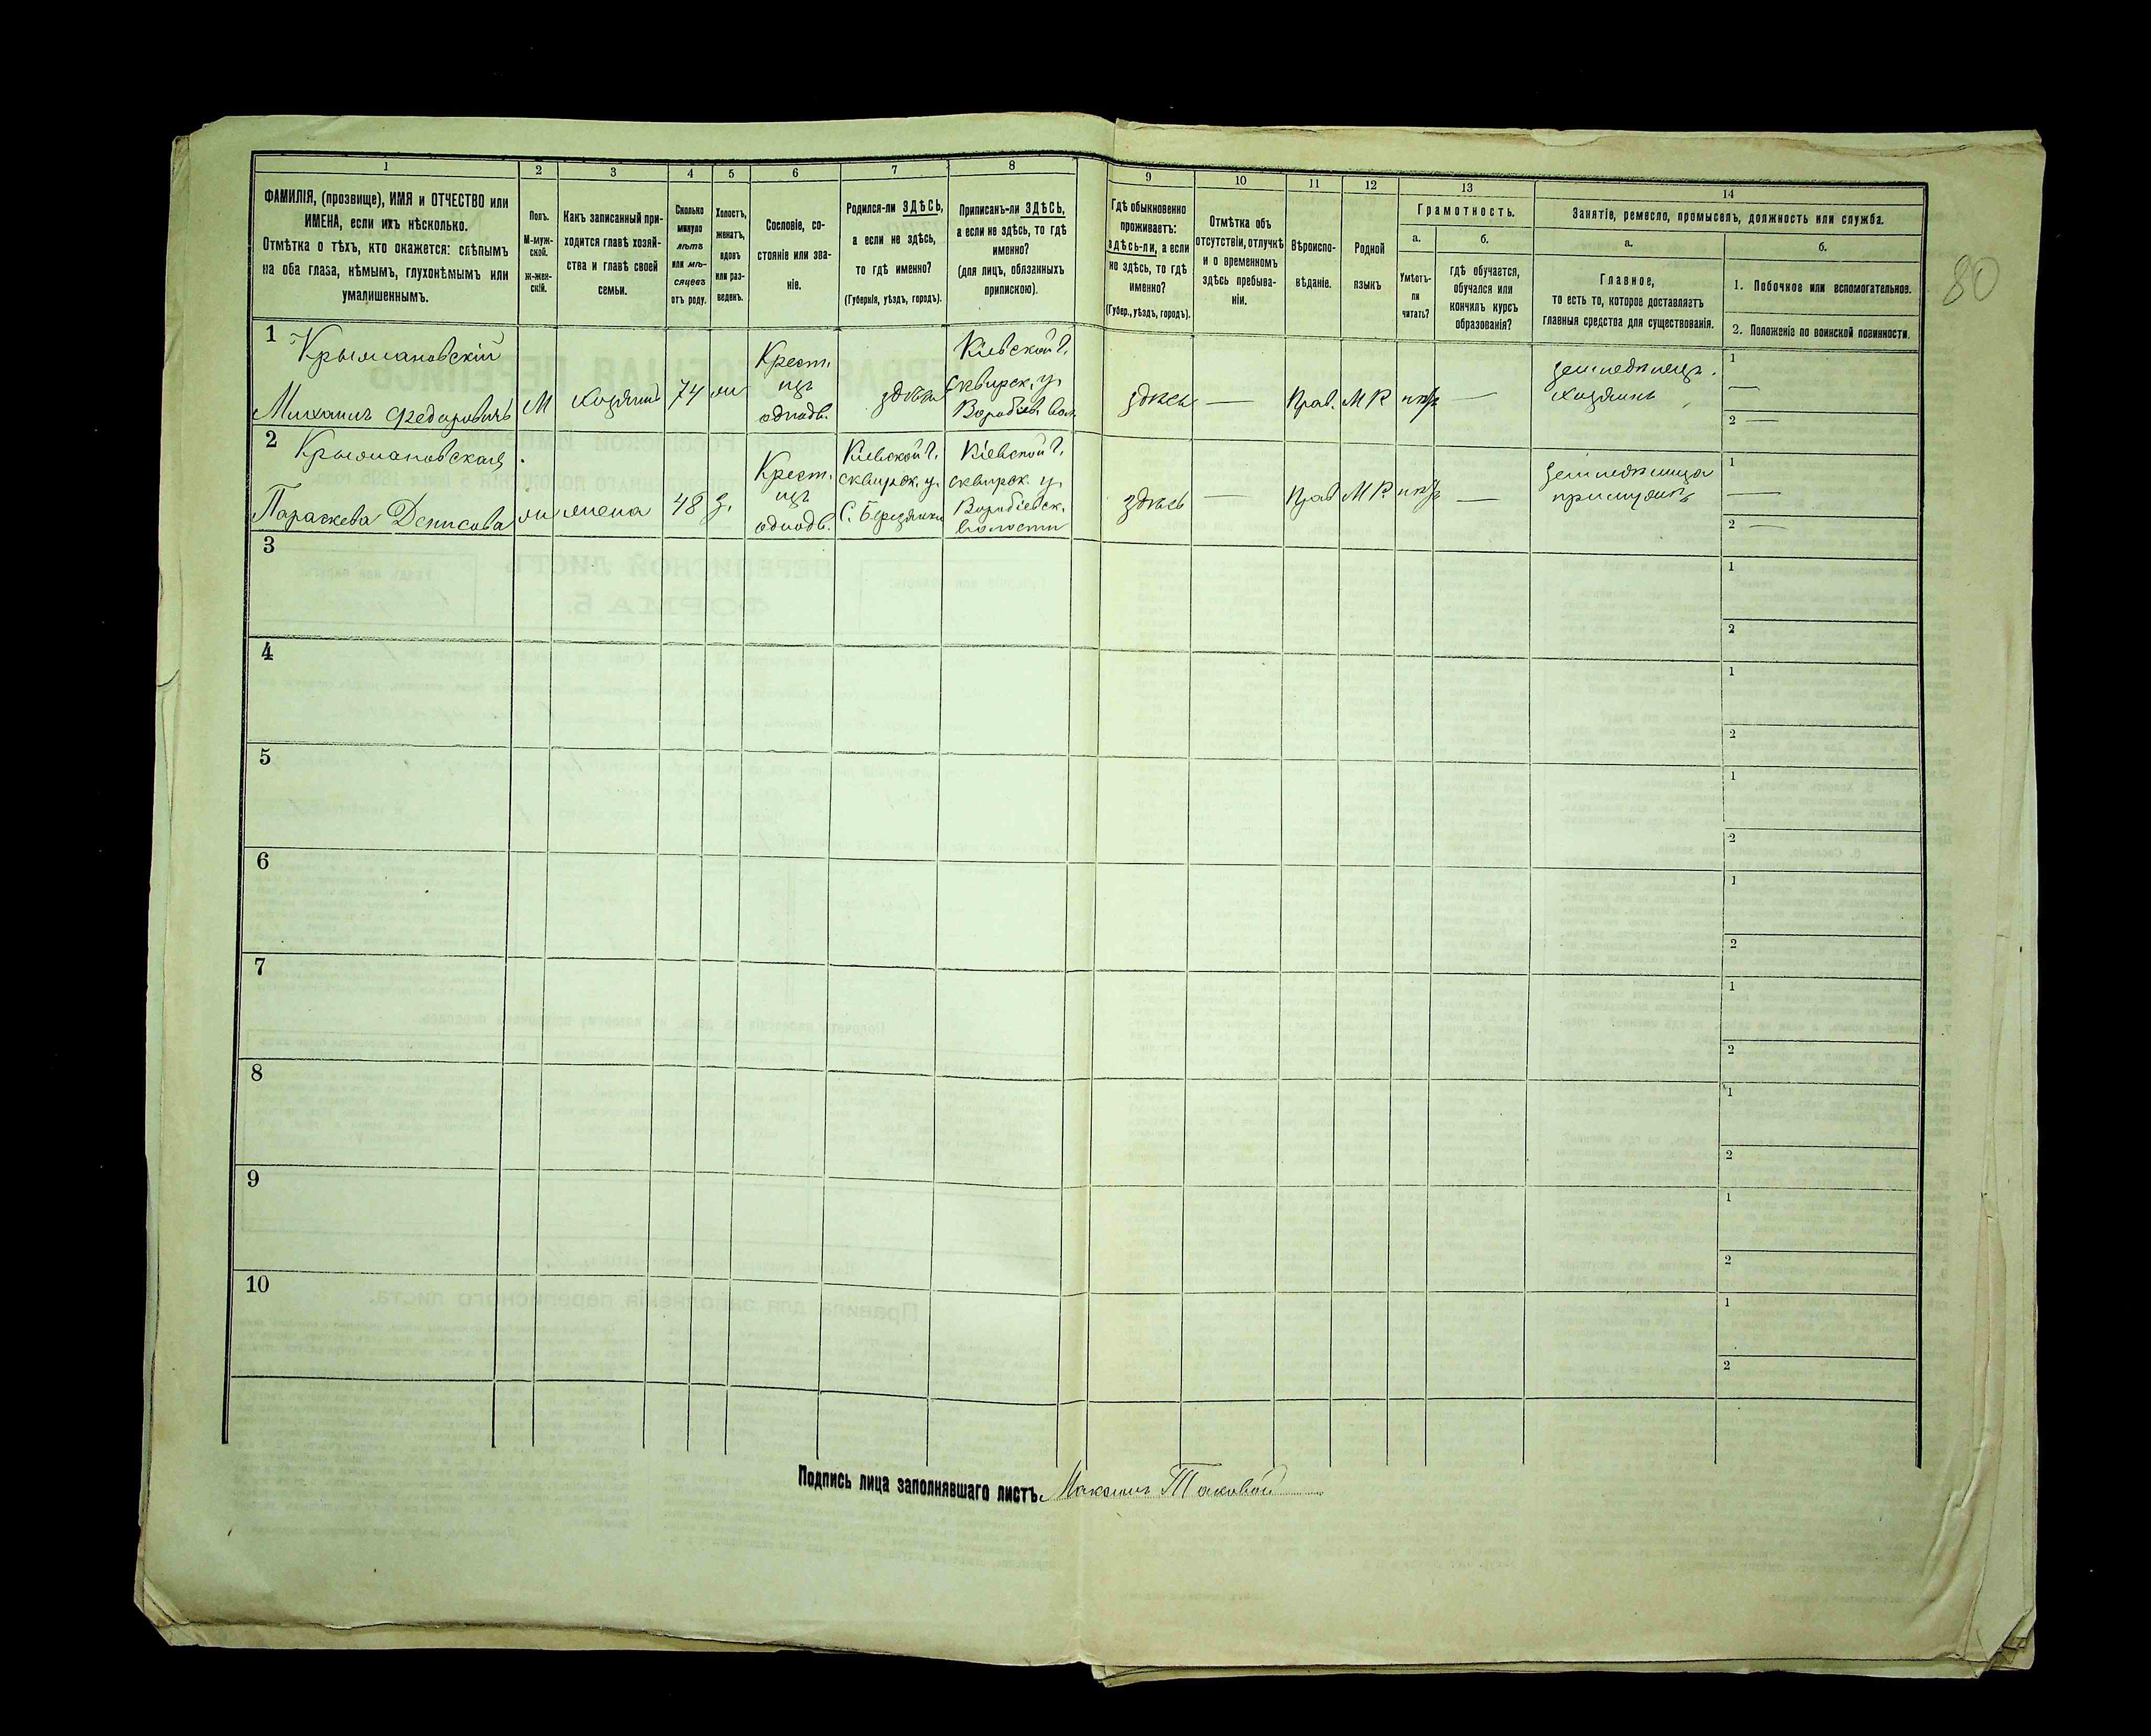 1 2 3 4 5 6 7 8 9 10 11 12 13 14
ФАМИЛІЯ, (прозвище), ИМЯ и ОТЧЕСТВО или
ИМЕНА, если ихъ нѣсколько.
Отмѣтка о тѣхъ, кто окажется: слѣпымъ
на оба глаза, нѣмымъ, глухонѣмымъ или
умалишеннымъ.
Полъ.
М-муж-
ской.
ж-жен-
скій.
Какъ записанный при-
ходится главѣ хозяй-
ства и главѣ своей
семьи.
Сколько
минуло
лѣтъ
или мѣ-
сяцевъ
отъ роду.
Холостъ,
женатъ,
вдовъ
или раз-
веденъ.
Сословіе, со-
стояніе или зва-
ніе.
Родился-ли ЗДѢСЬ,
а если не здѣсь,
то гдѣ именно?
(Губернія, уѣздъ, городъ).
Приписанъ-ли ЗДѢСЬ,
а если не здѣсь, то гдѣ
именно?
(для лицъ, обязанныхъ
припискою).
Гдѣ обыкновенно
проживаетъ:
здѣсь-ли, а если
не здѣсь, то гдѣ
именно?
(Губер., уѣздъ, городъ).
Отмѣтка объ
отсутствіи, отлучкѣ
и о временномъ
здѣсь пребыва-
ніи.
Вѣроиспо-
вѣданіе.
Родной
языкъ
Грамотность.
а.
Умѣетъ-
ли
читать?
б.
гдѣ обучается,
обучался или
кончилъ курсъ
образованія?
Занятіе, ремесло, промыселъ, должность или служба.
а.
Главное,
то есть то, которое доставляетъ
главныя средства для существованія.
б.
1. Побочное или вспомогательное.
2. Положеніе по воинской повинности.
80
1
Крыжановскій
Михаилъ Федоровичъ
М
хозяинъ
74
Крест.
изъ
однодв.
здѣсь
Кіевской г.
сквирск. у.
Воробіев. вол.
здѣсь
—
Прав.
М Р
—
земледѣлецъ.
хозяинъ
1
—
2 —
2
Крыжановская
Параскева Денисова
ж
жена
48
з.
Крест.
изъ
однодв.
Кіевской г.
сквирск. у.
С. Березянки
Кіевской г.
сквирск. у.
Воробіевск.
волости
здѣсь
—
Прав
М Р
—
1
—
2 —
3
1
2
4
1
2
5
1
2
6
1
2
7
1
2
8
1
2
9
1
2
10
1
2
Подпись лица заполнявшаго листъ